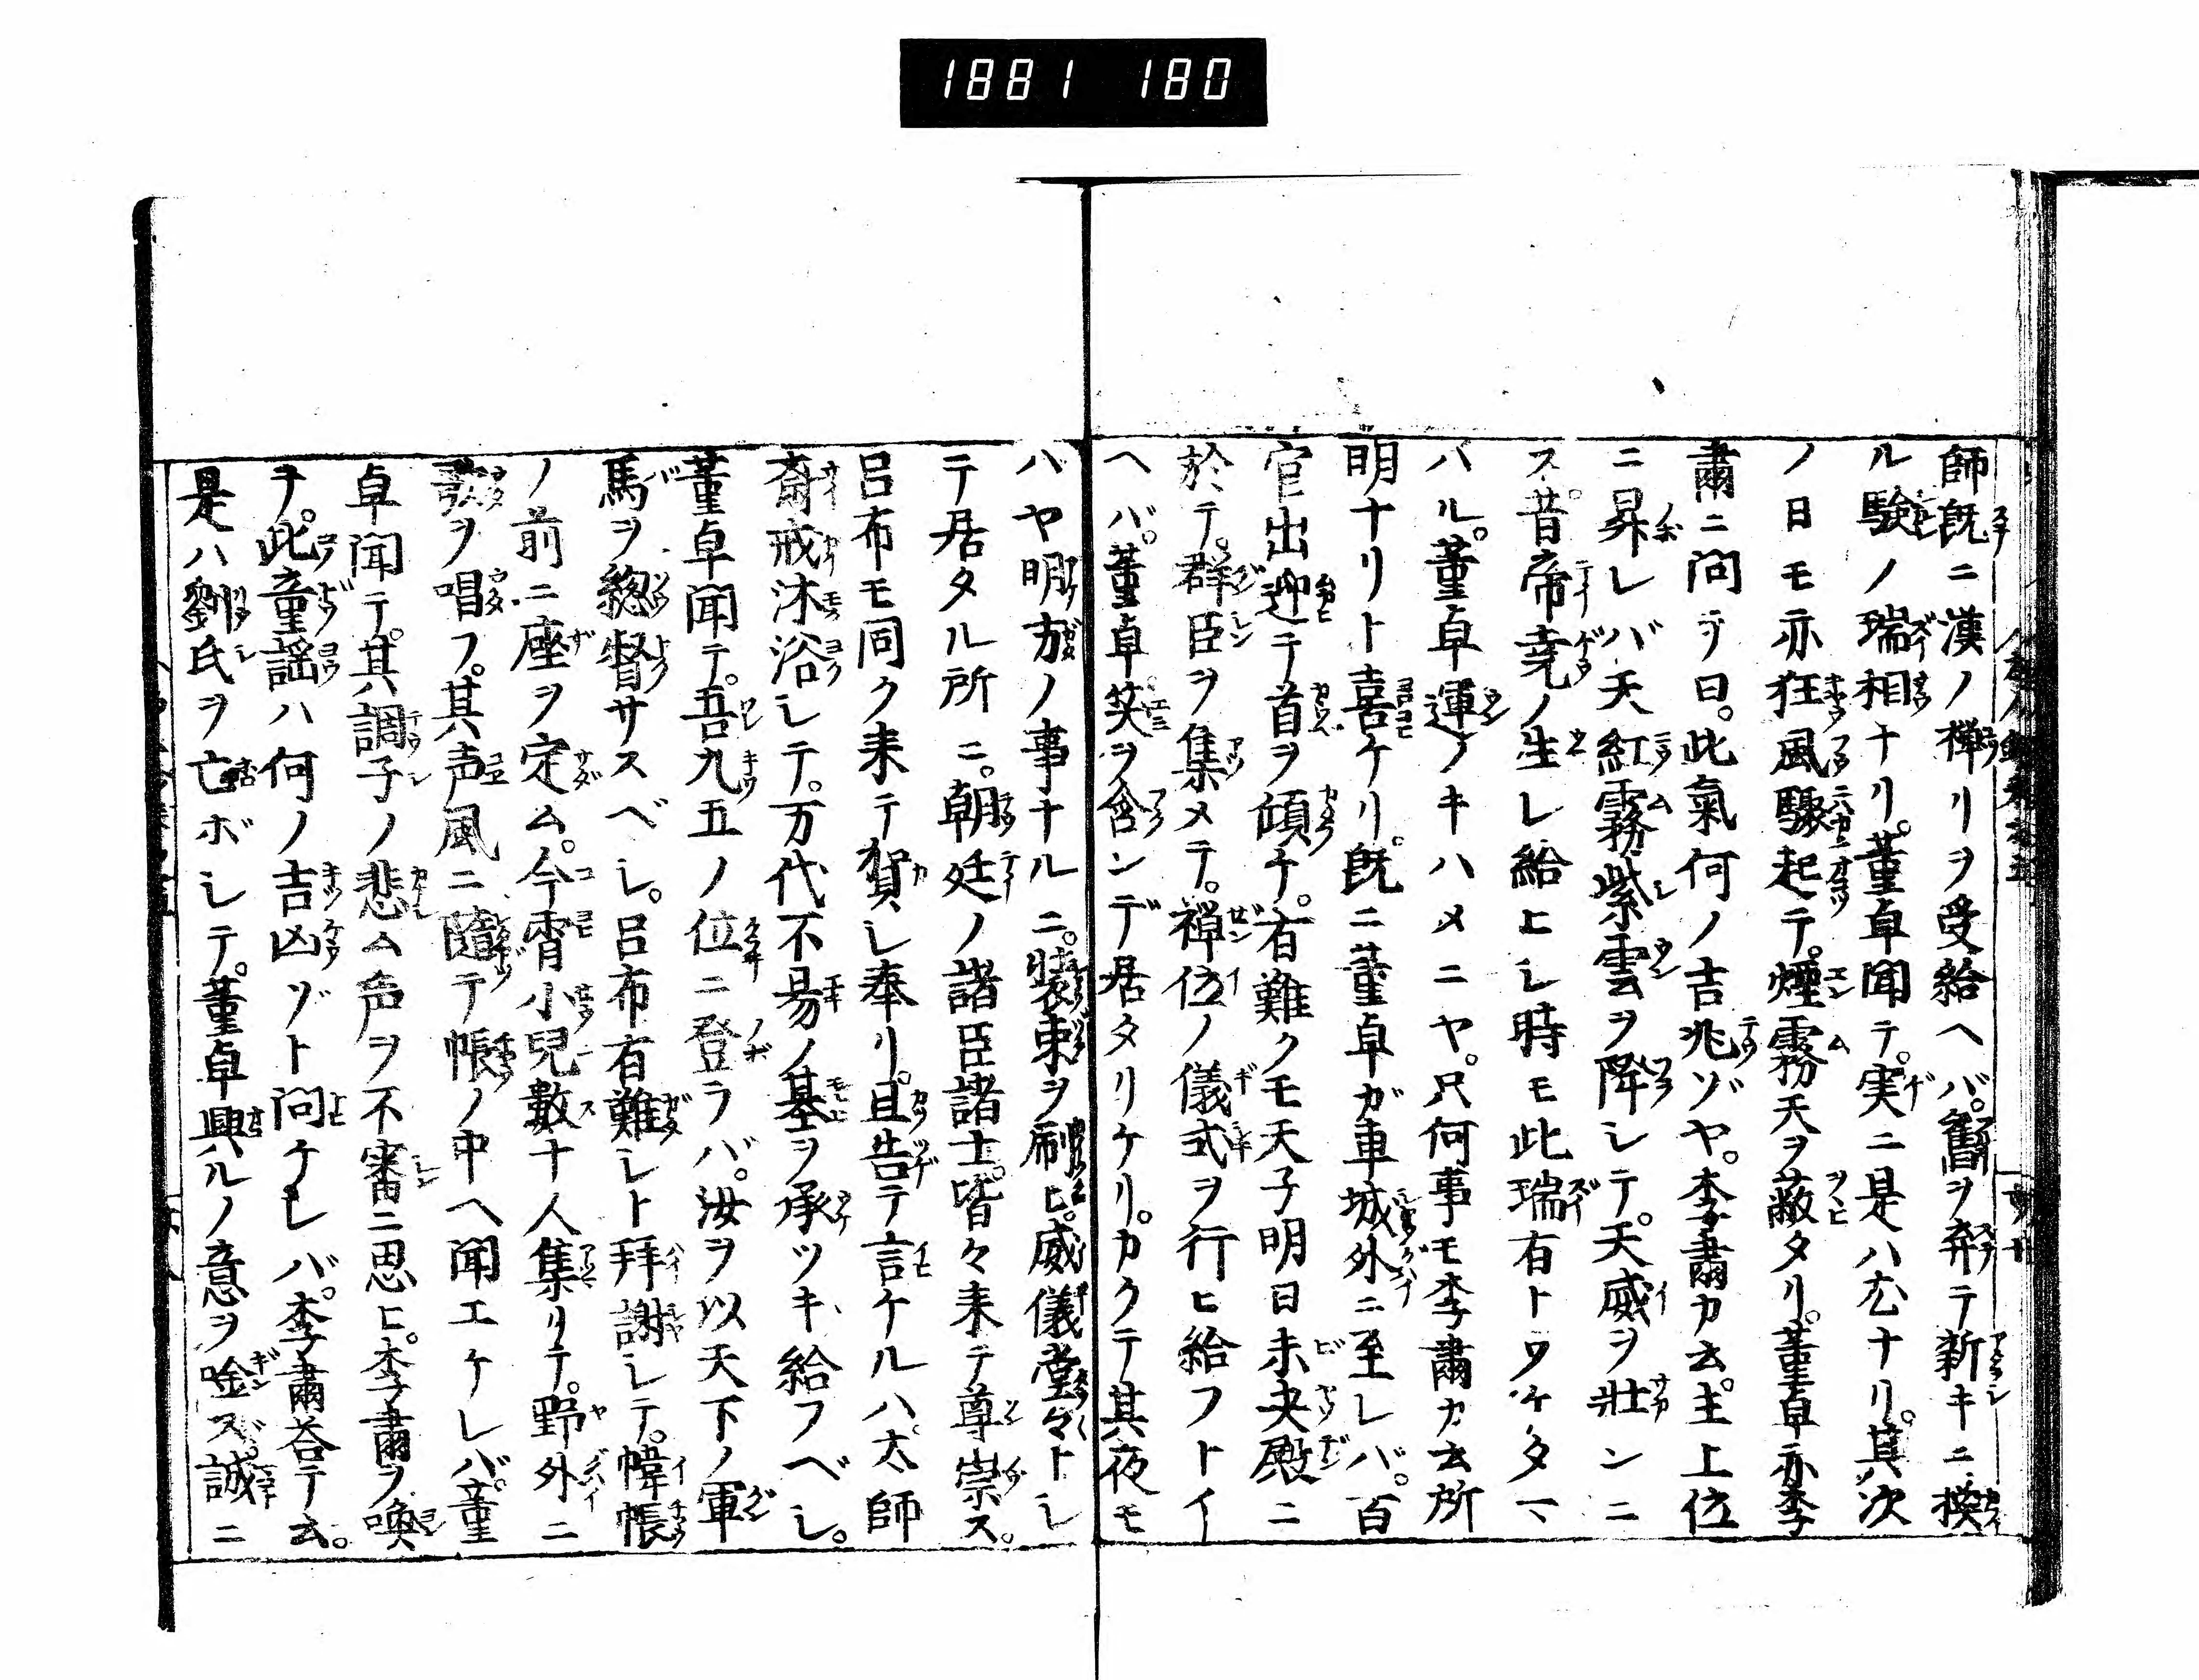 1881 180
師既ニ漢ノ禅リヲ受給ヘバ。舊ヲ弃テ新キニ換
ル驗ノ瑞相ナリ。董卓聞テ。実ニ是ハ尤ナリ。其次
ノ日モ亦狂風驟起テ。煙霧天ヲ蔽タリ。董卓亦李
肅ニ問テ曰。此氣何ノ吉兆ゾヤ。李肅カ云。主上位
ニ昇レバ天紅霧紫雲ヲ降レテ。天威ヲ壮ンニ
ス。昔帝尭ノ生レ給ヒシ時モ此瑞有トワケタマ
ハル。董卓運ノキハメニヤ。只何事モ李肅カ云所
明ナリト喜ケリ。既ニ董卓ガ車城外ニ至レバ。百
官出迎テ首ヲ傾ケ。有難クモ天子明日未央殿ニ
於テ。群臣ヲ集メテ。禅位ノ儀式ヲ行ヒ給フトイ
ヘバ。董卓笑ヲ含ンデ居タリケリ。カクテ其夜モ
ハヤ明方ノ事ナルニ。装束ヲ刷ヒ。威儀堂々トシ
テ居タル所ニ。朝廷ノ諸臣諸士。皆々来テ尊崇ス。
呂布モ同ク来テ賀シ奉リ。且告テ言ケルハ。太師
斎戒沐浴シテ。万代不易ノ基ヲ承ツキ給フベシ。
董卓聞テ。吾九五ノ位ニ登ラバ。汝ヲ以天下ノ軍
馬ヲ総督サスベシ。呂布有難シト拜謝シテ。幃帳
ノ前ニ座ヲ定ム。今宵小兒數十人集リテ。野外ニ
歌ヲ唱フ。其声風ニ隨テ帳ノ中ヘ聞エケレバ。董
卓聞テ。其調子ノ悲ム声ヲ不審ニ思ヒ。李肅ヲ喚
テ。此童謡ハ何ノ吉凶ゾト問ケレバ。李肅荅テ云。
是ハ劉氏ヲ亡ボシテ。董卓興ルノ意ヲ唫ス。誠ニ